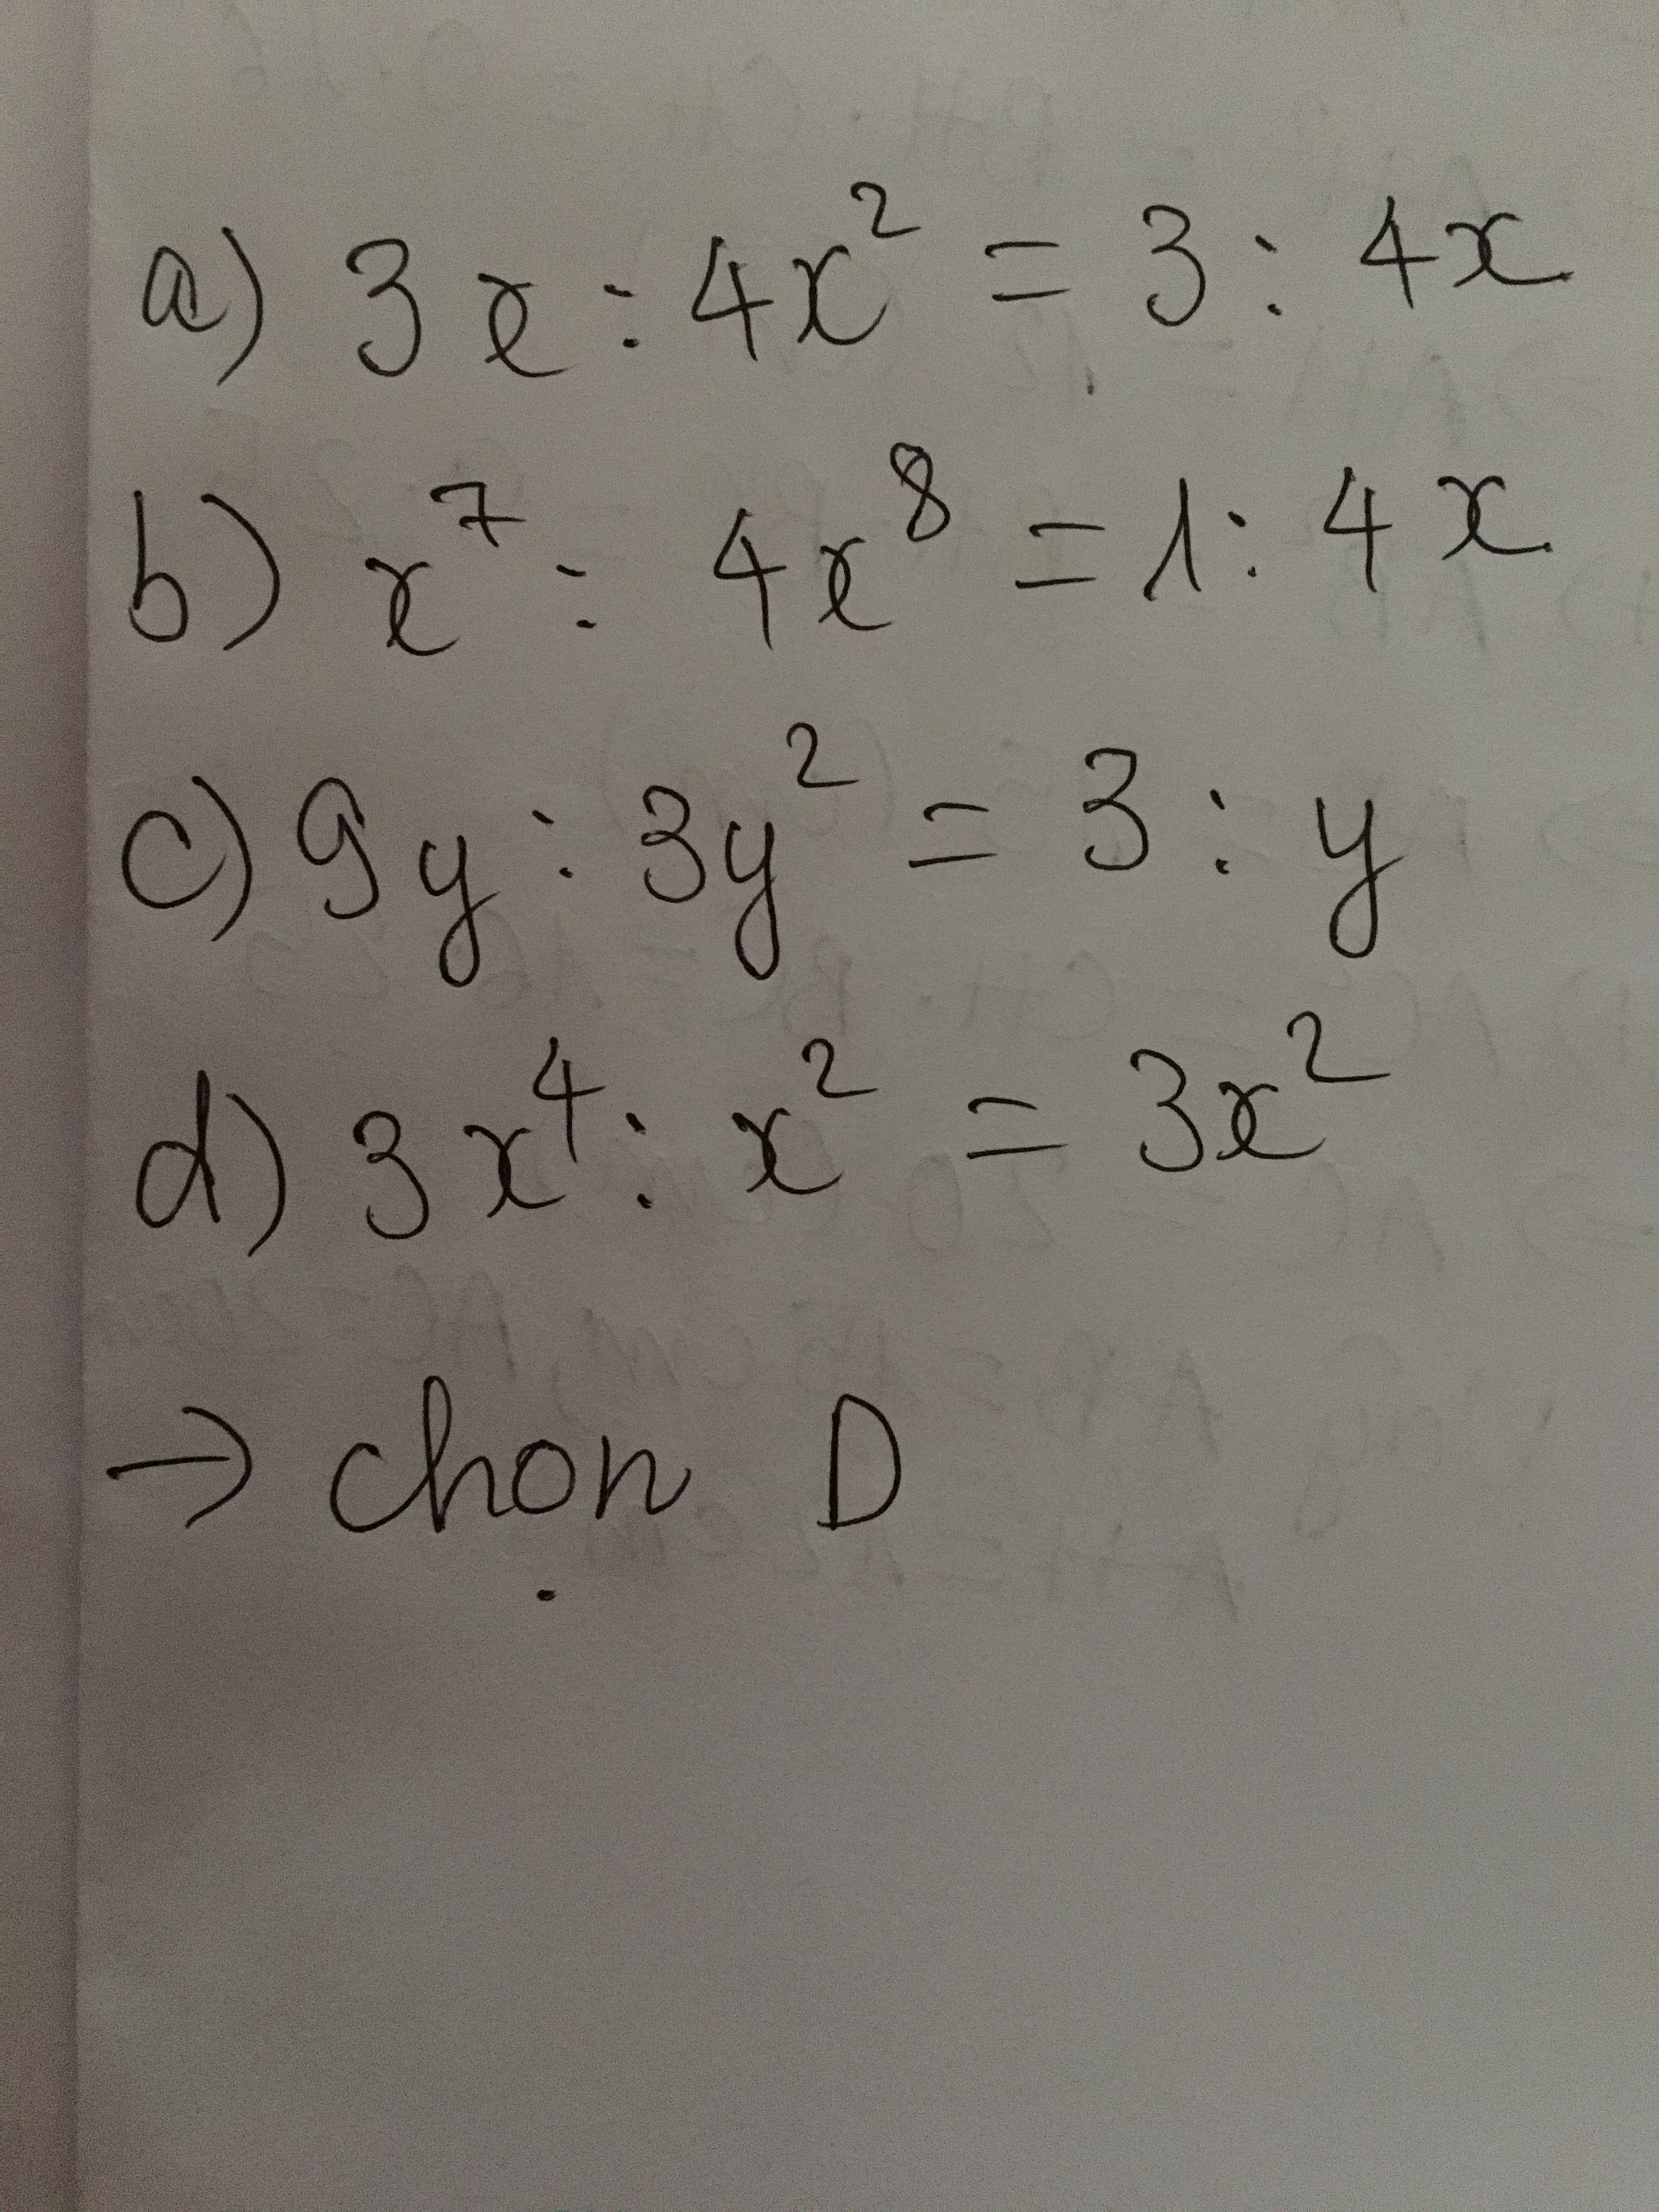 a) 3x : 4x² = 3 : 4x
b) x⁷ : 4x⁸ = 1 : 4x
c) 9y : 3y² = 3 : y
d) 3x⁴ : x² = 3x²
→ chọn D